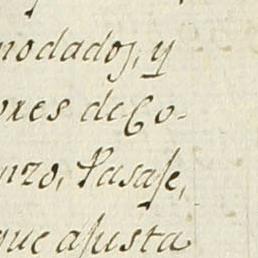 modados, y
ores de Co-
nzo, Pasaje,
que ajusta